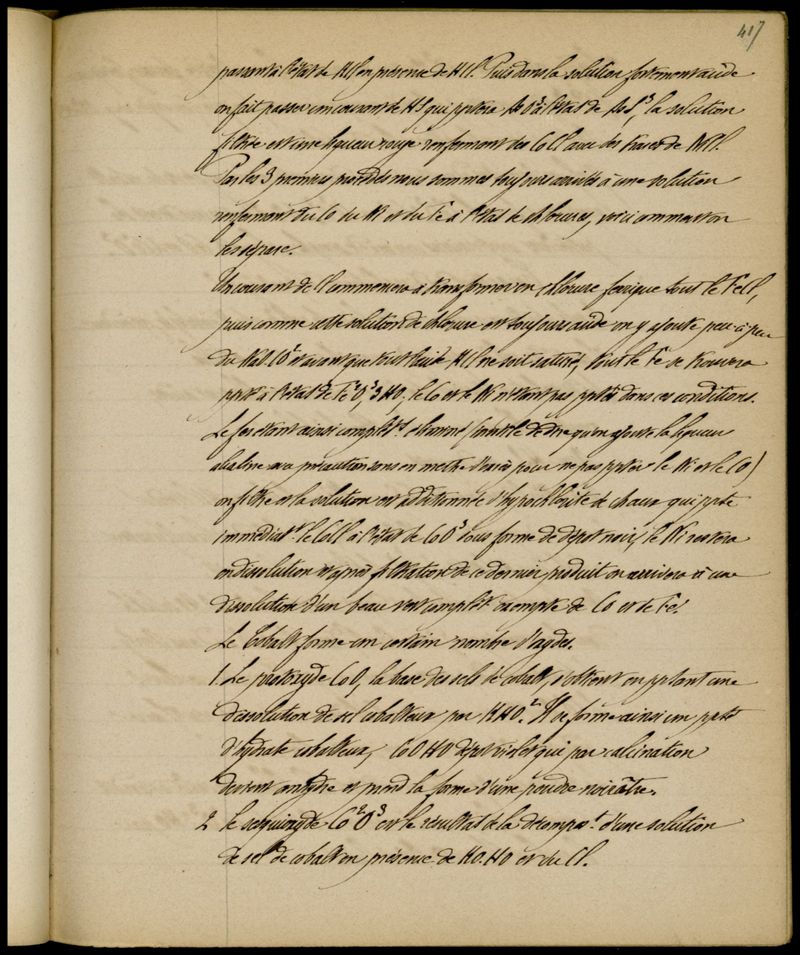 417
passant à l'état de HCl en présence de HCl. Puis dans la solution fortement acide
on fait passer un courant de HS qui pptera As O³ à l'état de As S³, la solution
filtrée est une liqueur rouge renfermant des CoCl avec des traces de NiCl.
Par les 3 premiers procédés nous sommes toujours arrivés à une solution
renfermant du Co du Ni et du Fe à l'état de chlorures, voici comment on
les sépare.
Un courant de Cl commencera à transformer en chlorure ferrique tout le FeCl,
puis comme cette solution de chlorure est toujours acide on y ajoute peu à peu
du NaO CO² et avant que tout l'acide HCl ne soit saturé, tout le Fe se trouvera
ppté à l'état de Fe²O³, 3HO, le Co et le Ni n'étant pas pptés dans ces conditions.
Le fer étant ainsi complètt éliminé (inutile de dire qu'on ajoute la liqueur
alcaline avec précaution sans en mettre d'excès pour ne pas ppter le Ni et le Co)
on filtre et la solution est additionnée d'hypochlorite de chaux qui ppte
immédiatt le CoCl à l'état de Co²O³ sous forme de dépôt noir, le Ni restera
en dissolution et après filtration de ce dernier produit on arrivera à une
dissolution d'un beau vert complètt exempte de Co et de Fe.
Le Cobalt forme un certain nombre d'oxydes.
1. Le protoxyde CoO, la base des sels de cobalt, s'obtient en pptant une
dissolution de sel cobalteux par KHO². Il se forme ainsi un ppté
d'hydrate cobalteux, CoO HO dépôt violet qui par calcination
devient anhydre et prend la forme d'une poudre noirâtre.
2 Le sesquioxyde Co²O³ est le résultat de la décompost. d'une solution
de sel de cobalt en présence de KO.HO et du Cl.